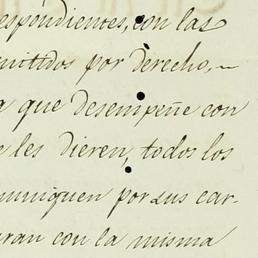 espondientes, con las
mitidos por derecho,~
a que desempeñe con
e les dieren, todos los
muniquen por sus car-
uran con la misma